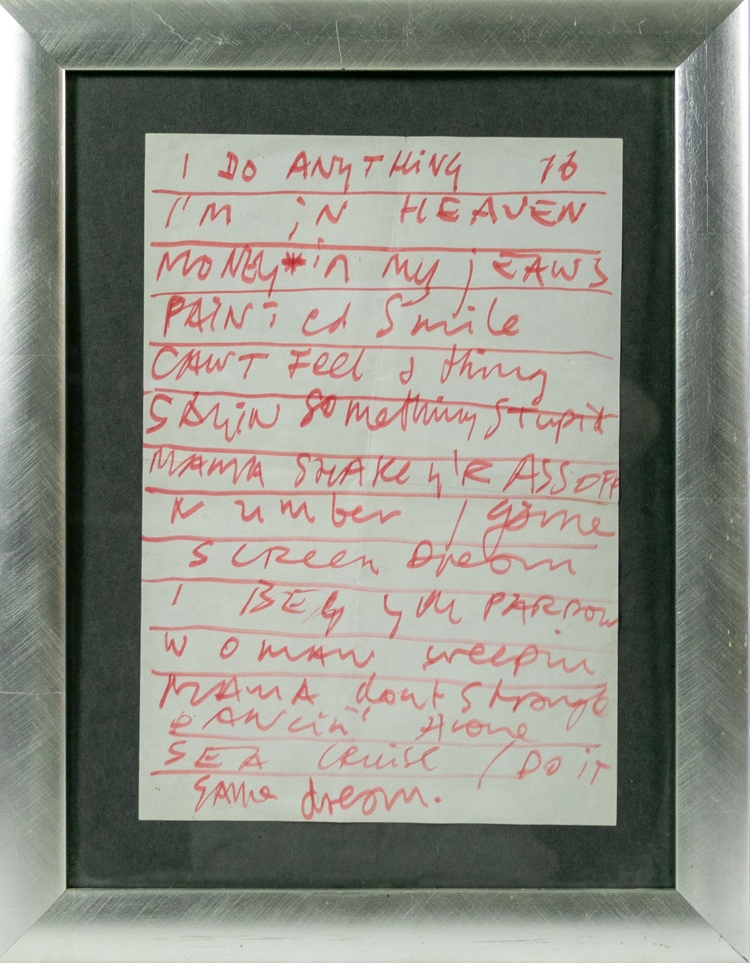 I DO ANYTHING 16
I'M iN HEAVEN
MONEY* in my jEANS
PAiNTed Smile
CAN'T Feel a thing
SAYiN Something STupid
MAMA SHAKE y'R ASS OFF
Number 1 game
SCREEN Dream
I BEG yUR PARDON
WOMAN weepin
MAMA dont
DANCiN' Alone
SEA CRUiSE / DO iT
SAME dream.